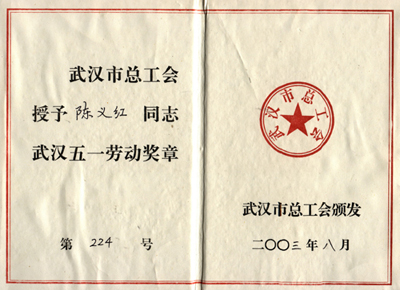 武汉市总工会
授予 陈义红 同志
武汉五一劳动奖章
第 224 号
武汉市总工会
武汉市总工会颁发
二〇〇三年八月